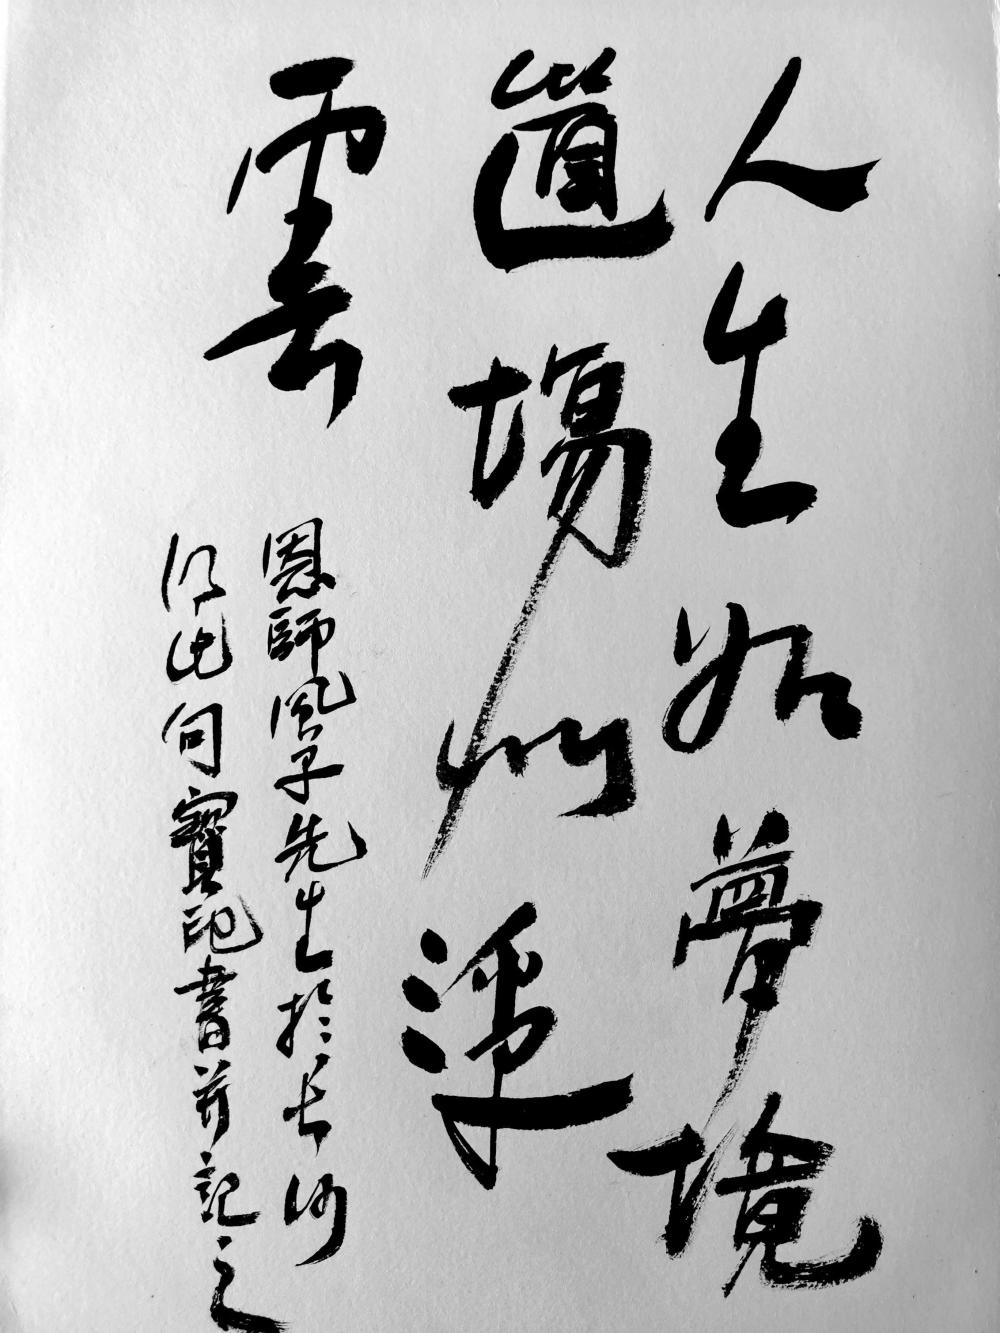 人生如夢境
道場似浮
雲
恩師風子先生於長沙
得此句寶記書並記之